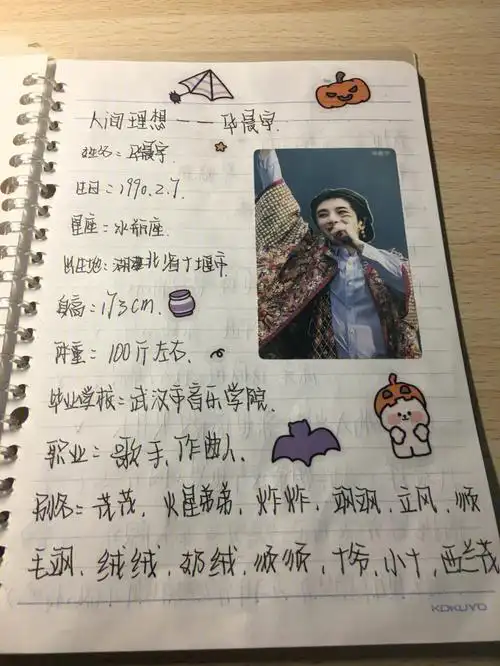 人间理想——华晨宇
姓名：华晨宇
生日：1990.2.7.
星座：水瓶座
出生地：湖北省十堰市
身高：173cm.
体重：100斤左右.
毕业学校：武汉市音乐学院.
职业：歌手、作曲人.
别名：茂茂、火星弟弟、炸炸、飒飒、立风、顺
毛飒、绒绒、奶绒、须须、十爷、小十、西兰茂
KOKUYO